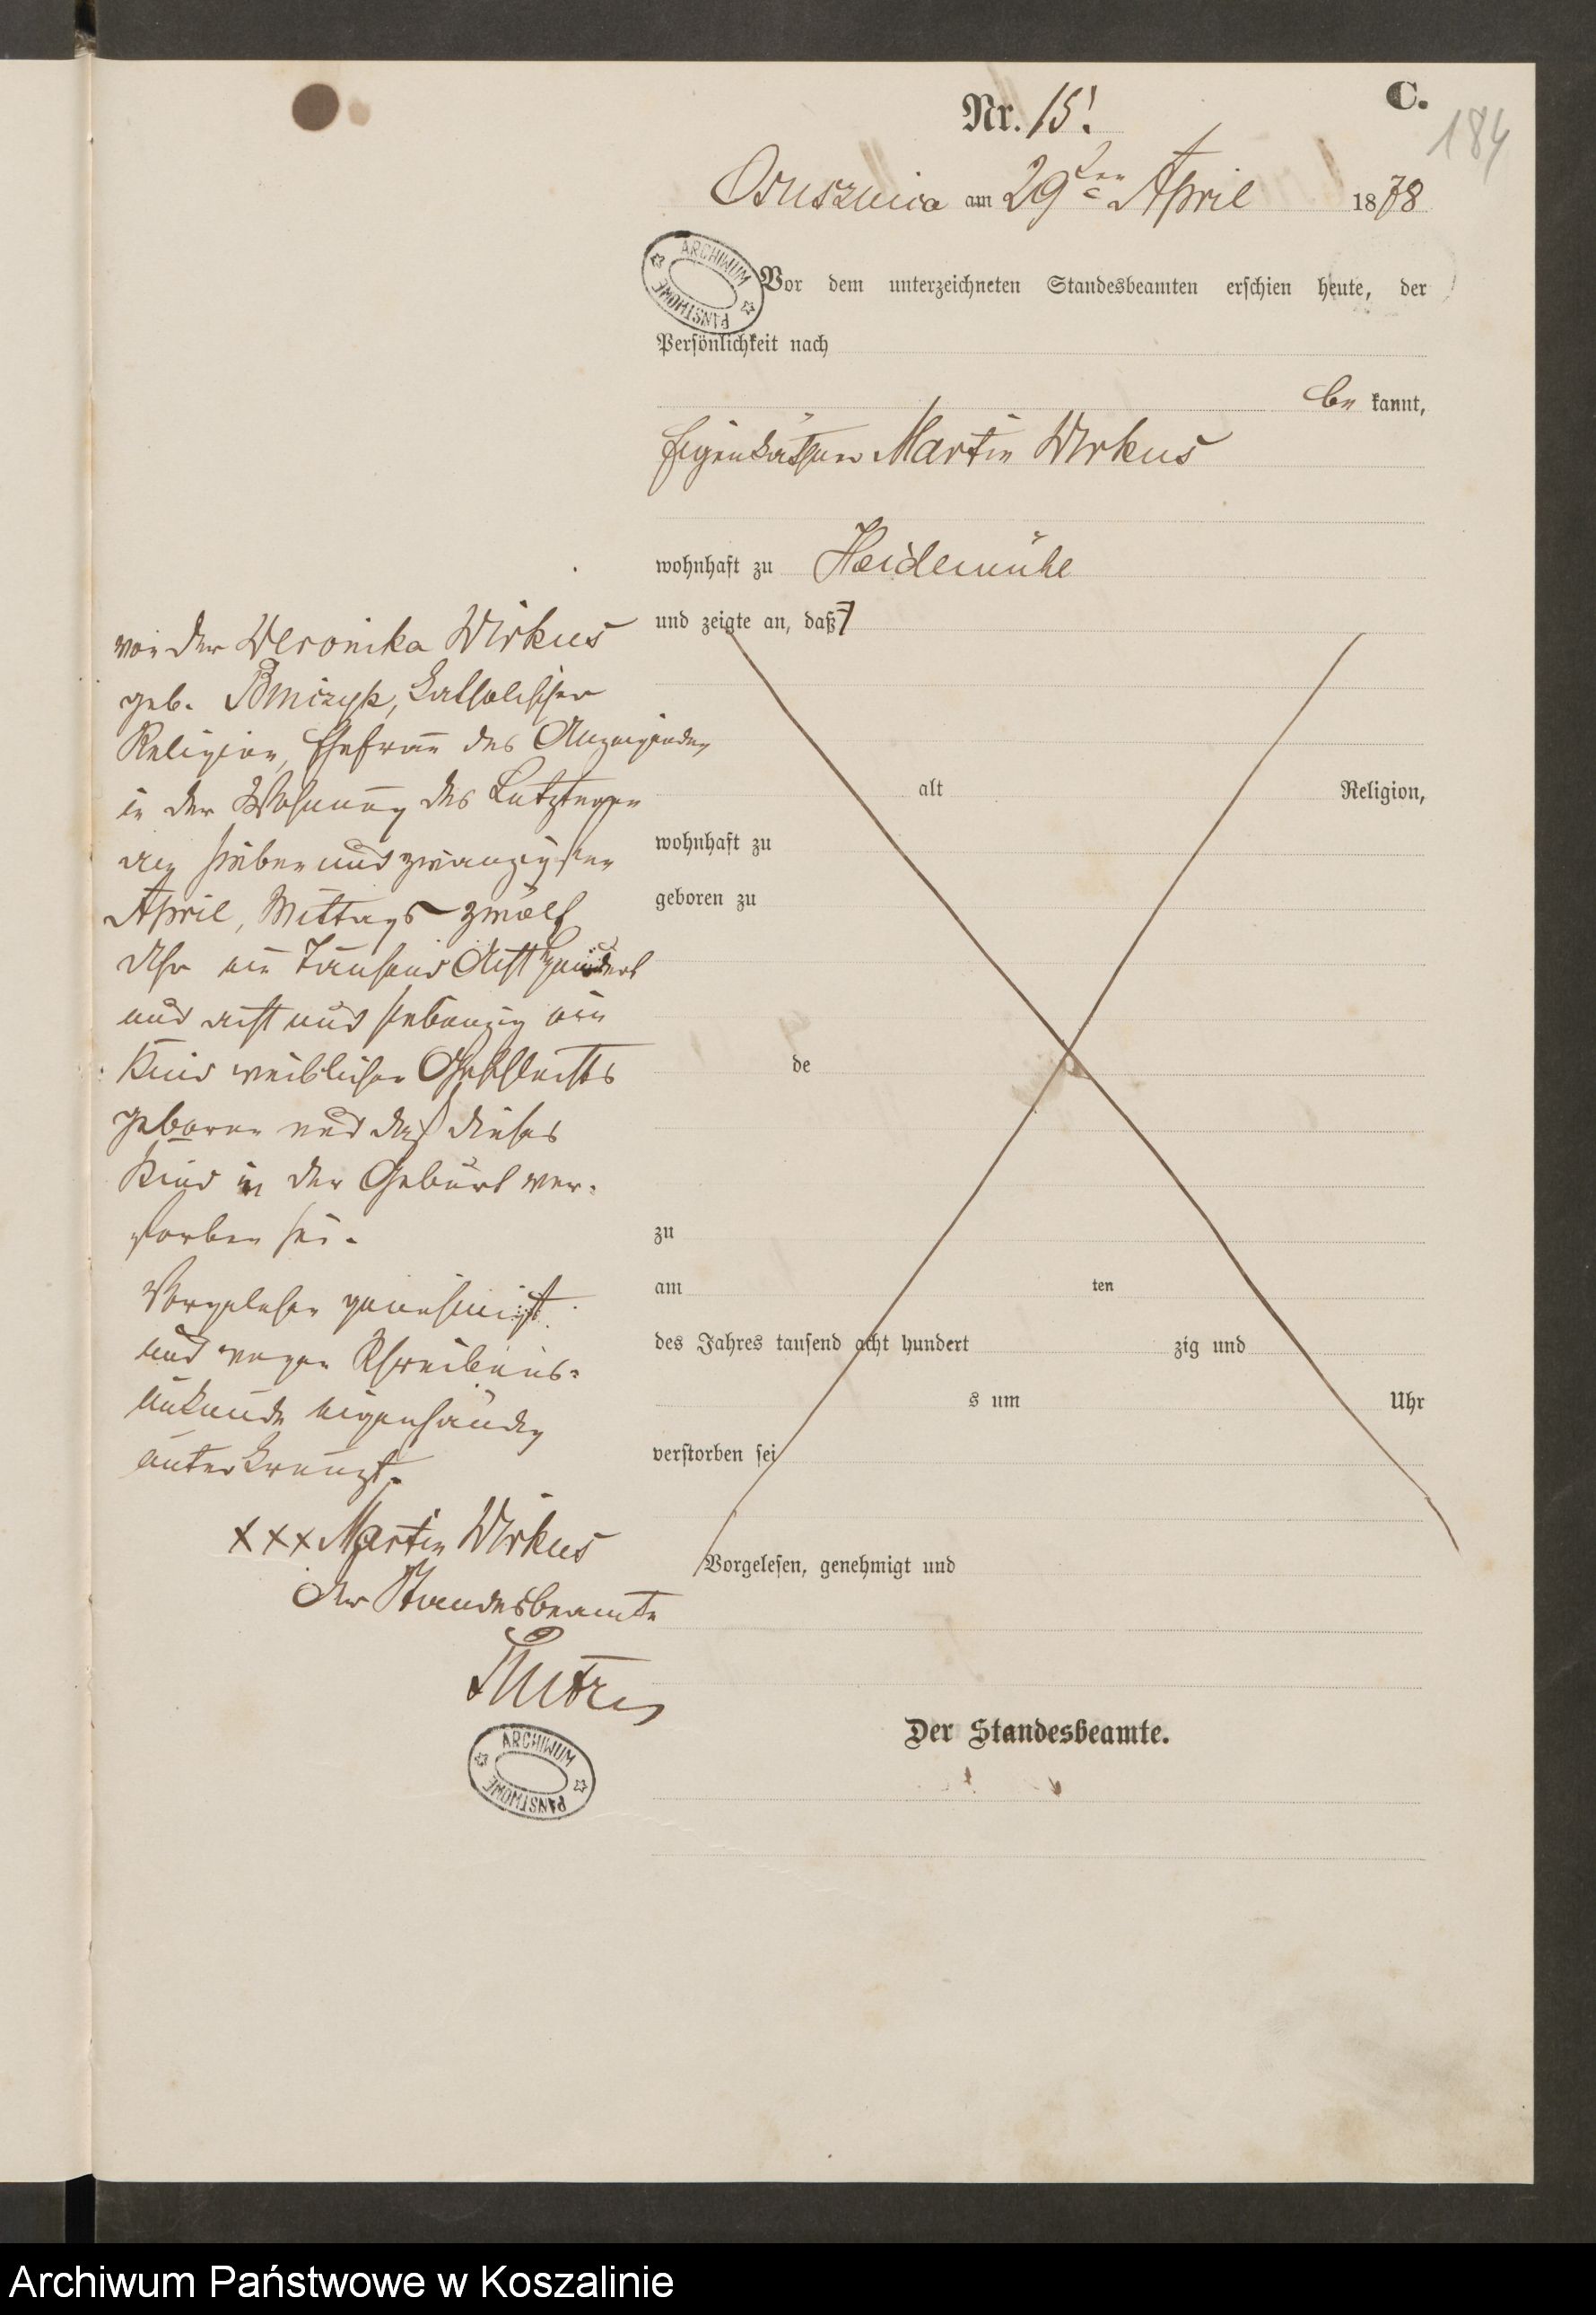 C.
Nr. 15.
184
Osusznica am 29ten April 1878
ARCHIWUM PAŃSTWOWE
Vor dem unterzeichneten Standesbeamten erschien heute, der
Persönlichkeit nach
be kannt,
Eigenkäthner Martin Wirkus
wohnhaft zu Heidemühle
und zeigte an, daß
von der Veronika Wirkus
geb. katholischer
Religion, Ehefrau des Anzeigenden
in der Wohnung des Letzteren
am sieben und zwanzigsten
April, Mittags zwölf
Uhr ein Tausend Acht hundert
und acht und siebenzig ein
Kind weiblichen Geschlechts
geboren und daß dieses
Kind in der Geburt ver-
storben sei.
Vorgelesen genehmigt
und wegen Schreibens-
unkunde eigenhändig
unterkreuzt.
xxx Martin Wirkus
Der Standesbeamte
ARCHIWUM PAŃSTWOWE
alt Religion,
wohnhaft zu
geboren zu
de
zu
am ten
des Jahres tausend acht hundert zig und
s um Uhr
verstorben sei
Vorgelesen, genehmigt und
Der Standesbeamte.
Archiwum Państwowe w Koszalinie